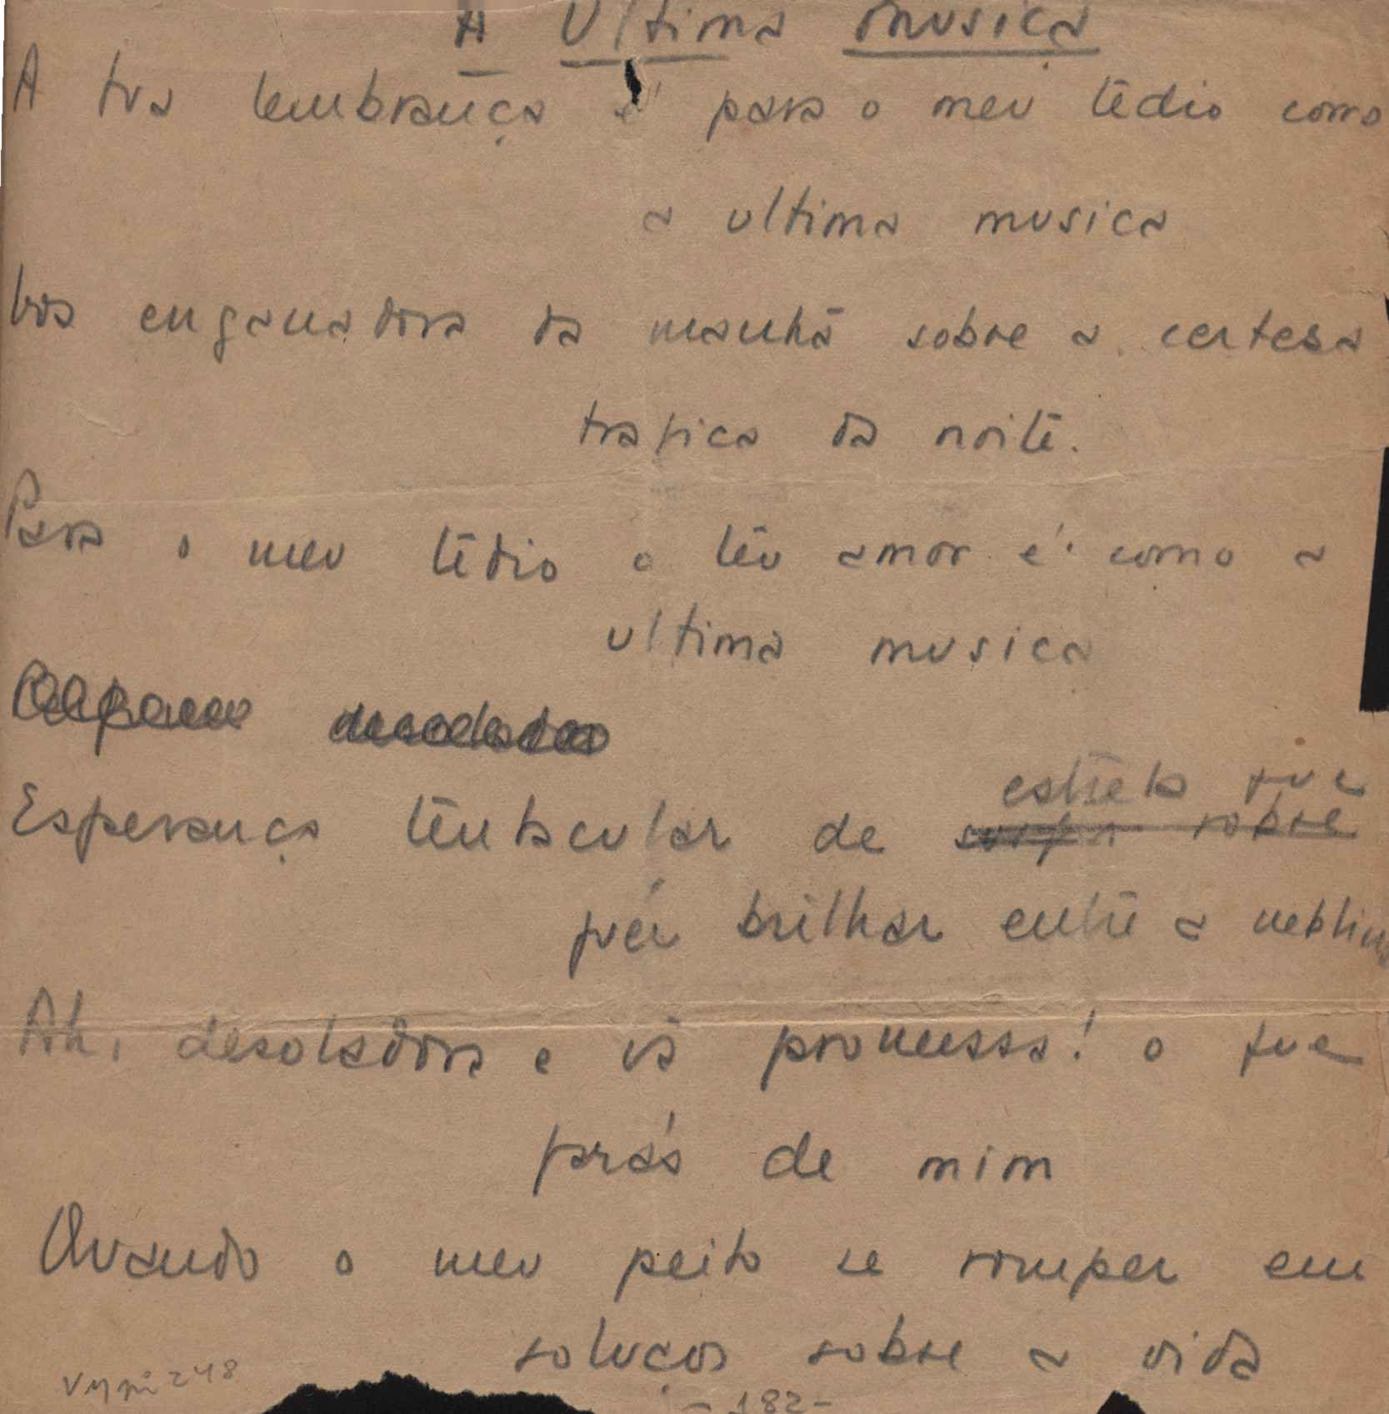 A Ultima musica
A tua lembrança é para o meu tédio como
a ultima musica
Voz enganadora da manhã sobre a certesa
tragica da noite.
Para o meu tédio o teu amor é como a
ultima musica
Esperança tentacular de estrela que
sobre
quér brilhar entre a neblina
Ah, desoladora e vã promessa! o que
farás de mim
Quando o meu peito se romper em
soluços sobre a vida
248
- 182 -